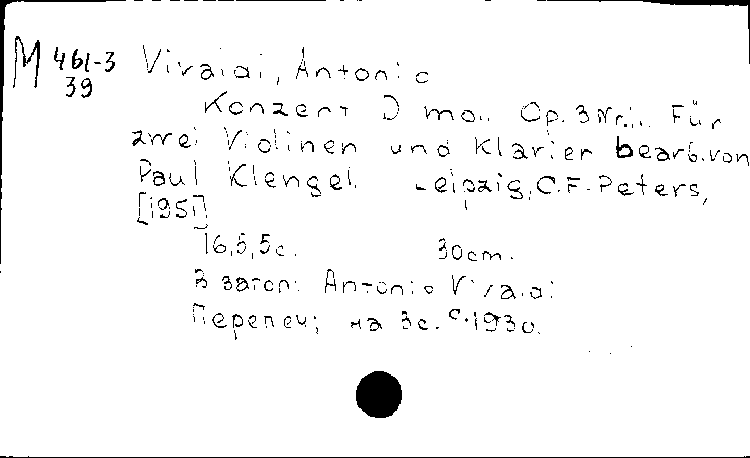 M 461-3 Vivaldi, Antonio
39
Konzert D moll Op. 3 Nr. 11. Für
zwei Violinen und Klavier bearb. von
Paul Klengel. Leipzig, C.F. Peters,
[1951]
16,5,5c. 30cm.
В загол: Antonio Vivaldi
Перепеч; на 3с. с. 1930.